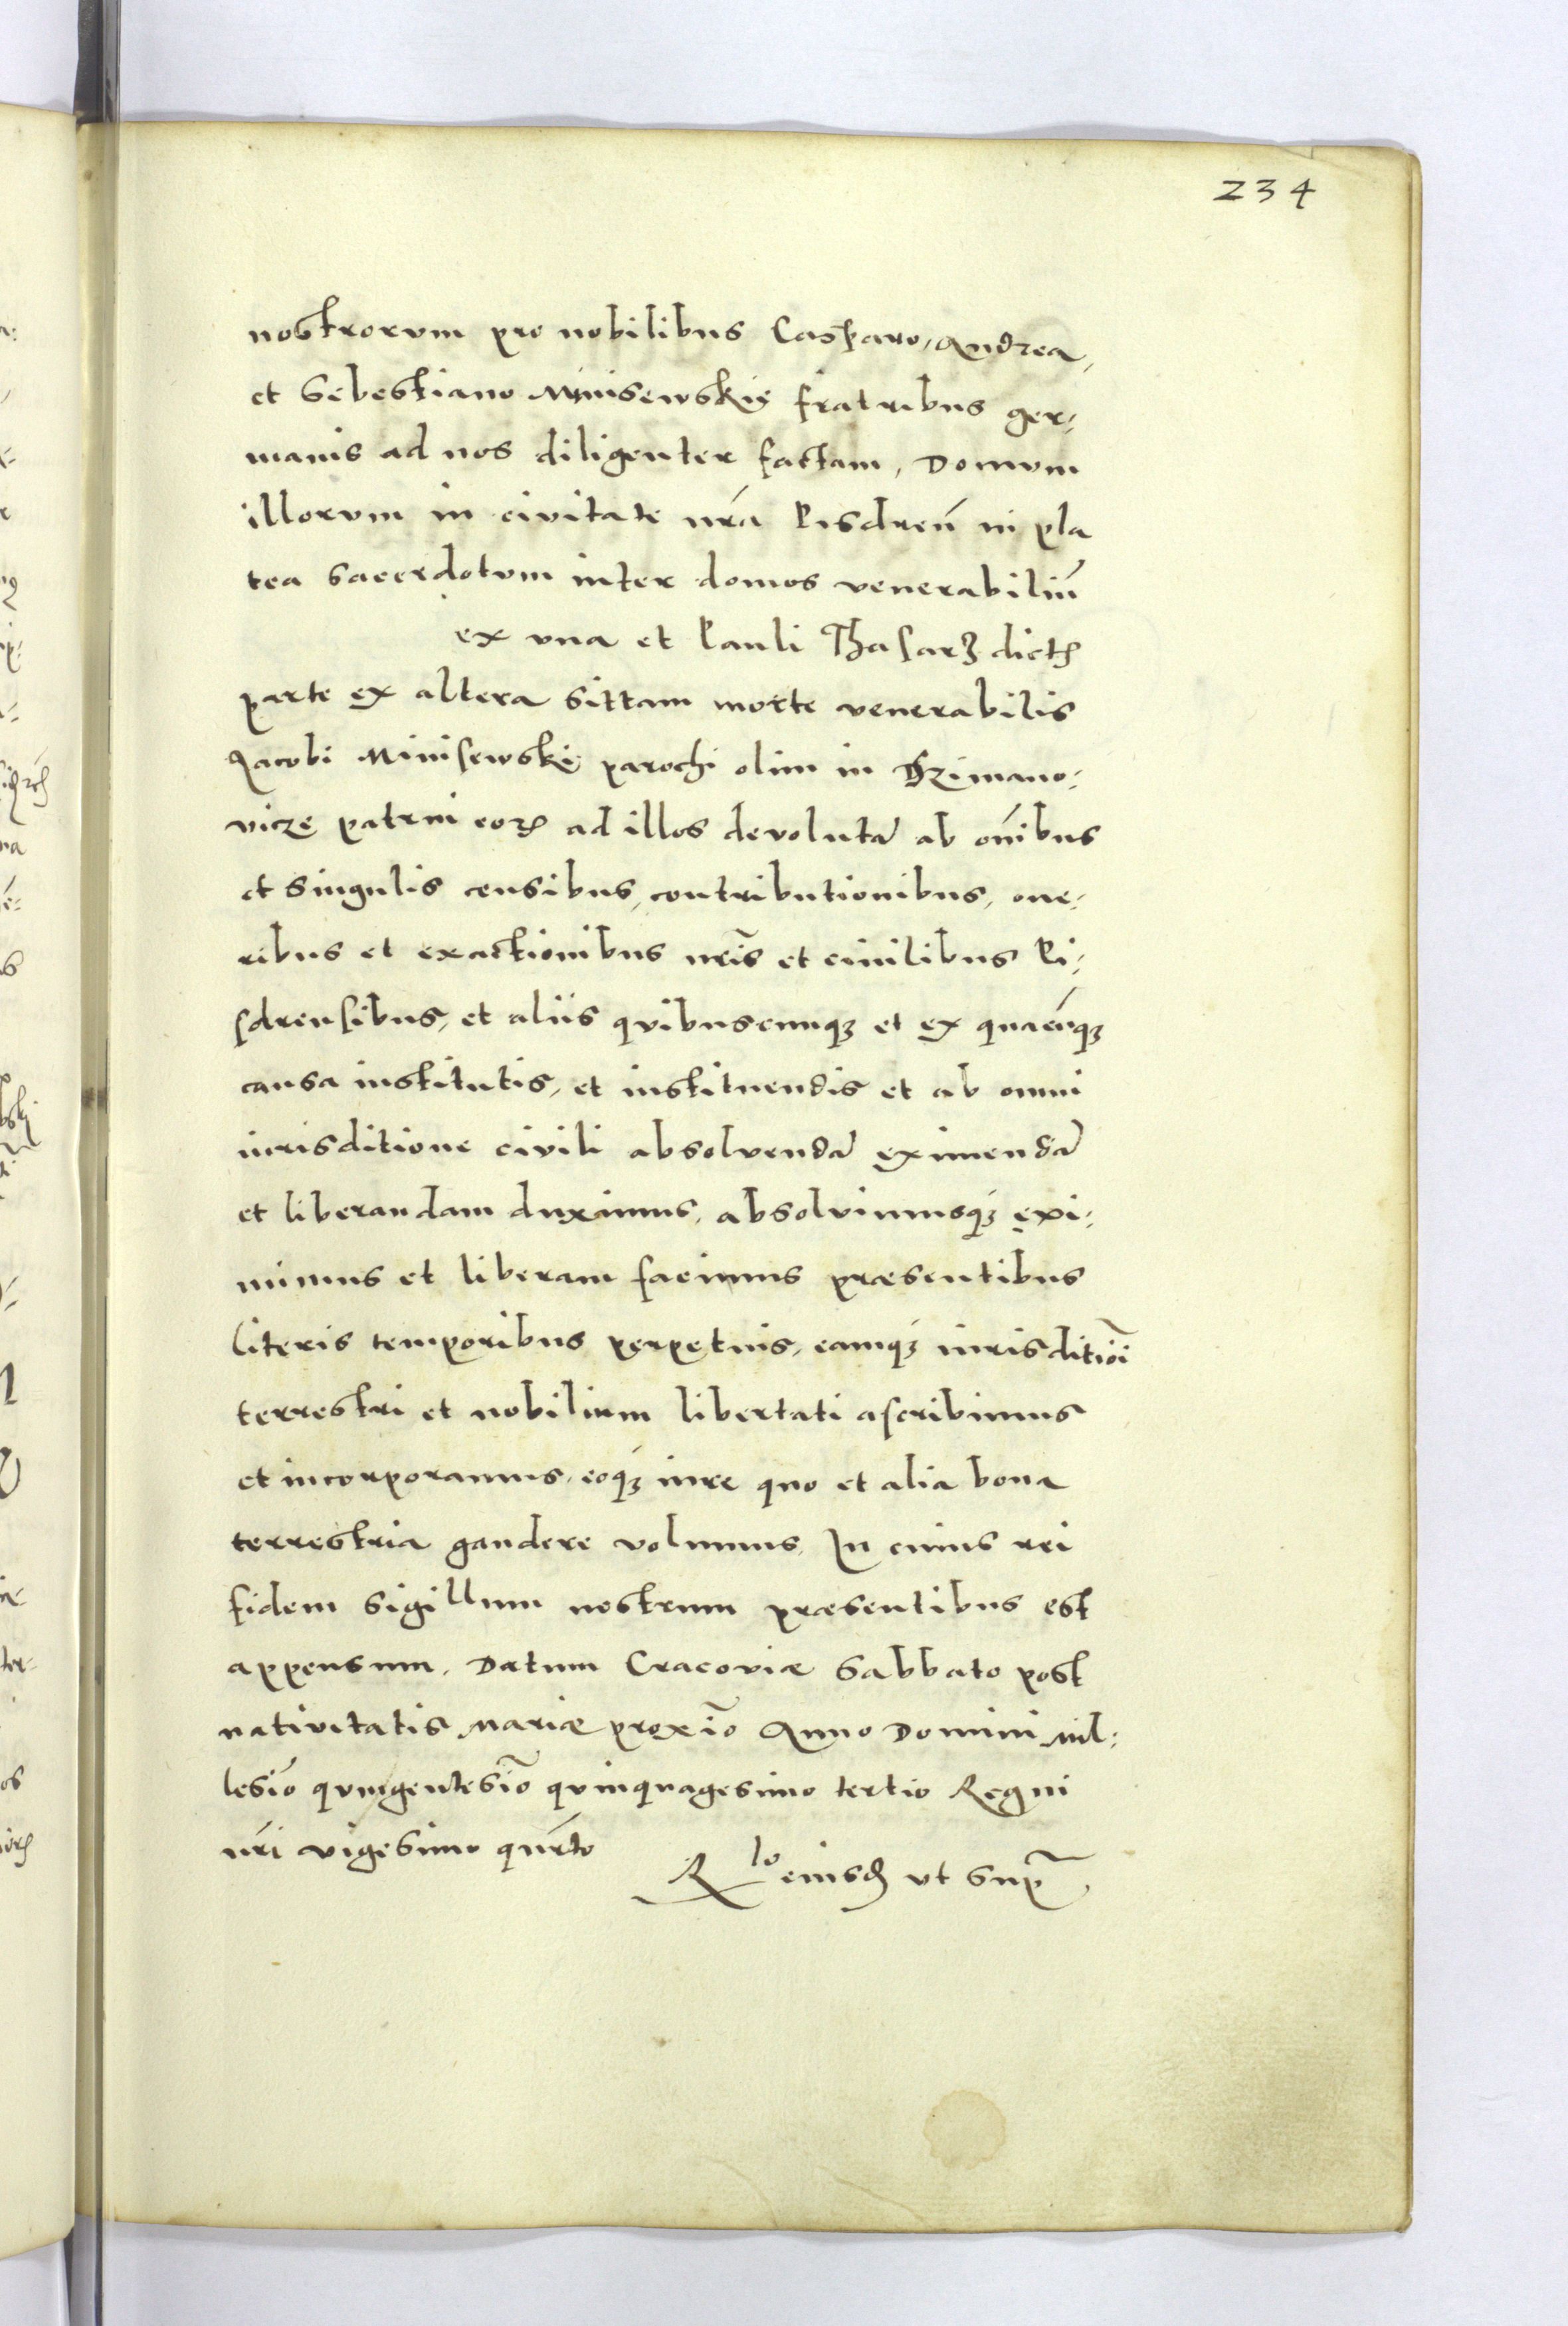 234
nostrorum pro nobilibus Casparo, Andrea,
et Sebestiano Minisewskis fratribus ger-
manis ad nos diligenter factam, Domum
illorum in civitate nr̃a Pisdreñ in pla
tea sacerdotum inter domos venerabiliũ
ex una et Pauli Thasarz dicti
parte ex altera sittam morte venerabilis
Jacobi Minisewski parochi olim in Dzimano-
vicze patrui eoꝝ ad illos devolutã ab om̃ibus
et singulis censibus, contributionibus, one-
ribus et exactionibus nr̃is et civilibus Pi-
sdrensibus, et aliis quibuscunqꝫ et ex quacũqꝫ
causa institutis, et instituendis et ab omni
iurisditione civili absolvendã eximendã
et liberandam duximus, absolvimusqꝫ exi-
mimus et liberam facimus præsentibus
literis temporibus perpetuis, eamqꝫ iurisditiõi
terrestri et nobilium libertati ascribimus
et incorporamus, eoqꝫ iure quo et alia bona
terrestria gaudere volumus. In cuius rei
fidem sigillum nostrum præsentibus est
appensum. Datum Cracoviæ Sabbato post
nativitatis Mariæ proxĩo Anno Domini Mil-
lesĩo quingentesĩo quinquagesimo tertio Regni
nr̃i vigesimo quarto
Rlo eiusd ut sup̃